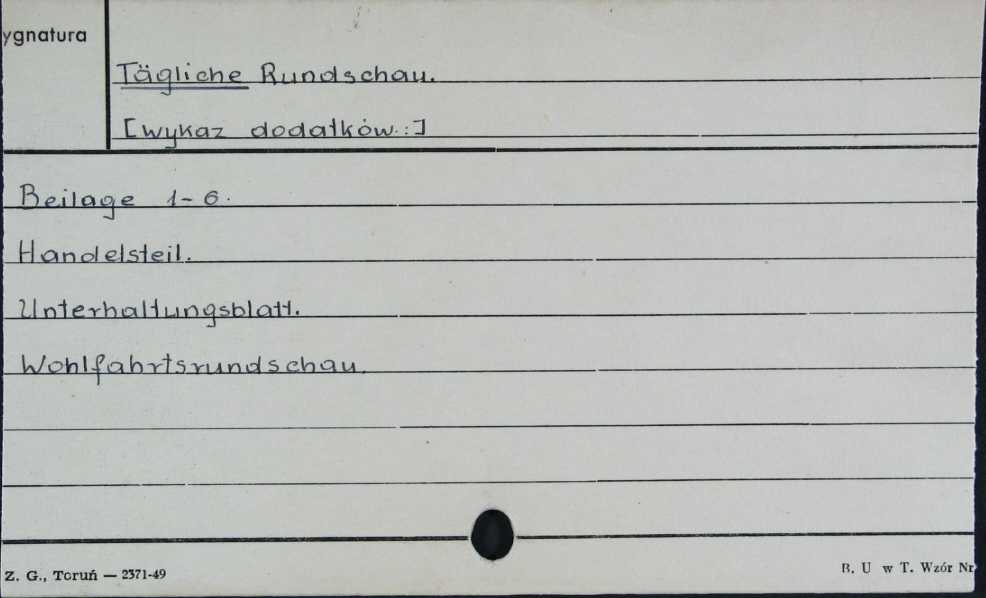 ygnatura
Tägliche Rundschau.
[wykaz dodatków.:]
Beilage 1-6.
Handelsteil.
Unterhaltungsblatt.
Wohlfahrtsrundschau.
Z. G., Toruń — 2371-49
B. U w T. Wzór Nr